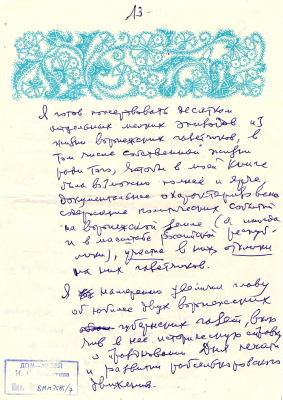 13-
Я готов пожертвовать десятком
отдельных мелких эпизодов из
жизни воронежских газетчиков, в
том числе собственной жизни
ради того, чтобы в моей книге
было возможно полнее и ярче
документально охарактеризовано
содержание политических событий
на воронежской земле (а иногда
и в масштабе российской респуб-
лики), участие в них, отклики
на них газетчиков.
Я намеренно увеличил главу
об юбилее двух воронежских
губернских газет, вклю-
чив в нее историческую справку
о праздновании Дня печати
и развитии рабселькоровского
движения.
ДОМ-МУЗЕЙ